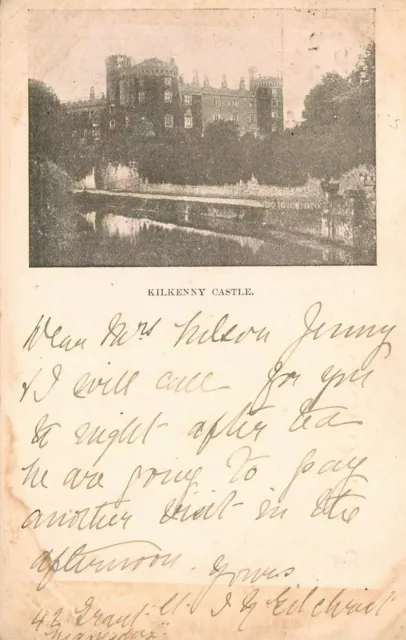 KILKENNY CASTLE.
Dear Mrs Nilson Jenny
& I will call for you
to night after tea
we are going to pay
another visit in the
afternoon.
Yours
42 Grant St J G Gilchrist